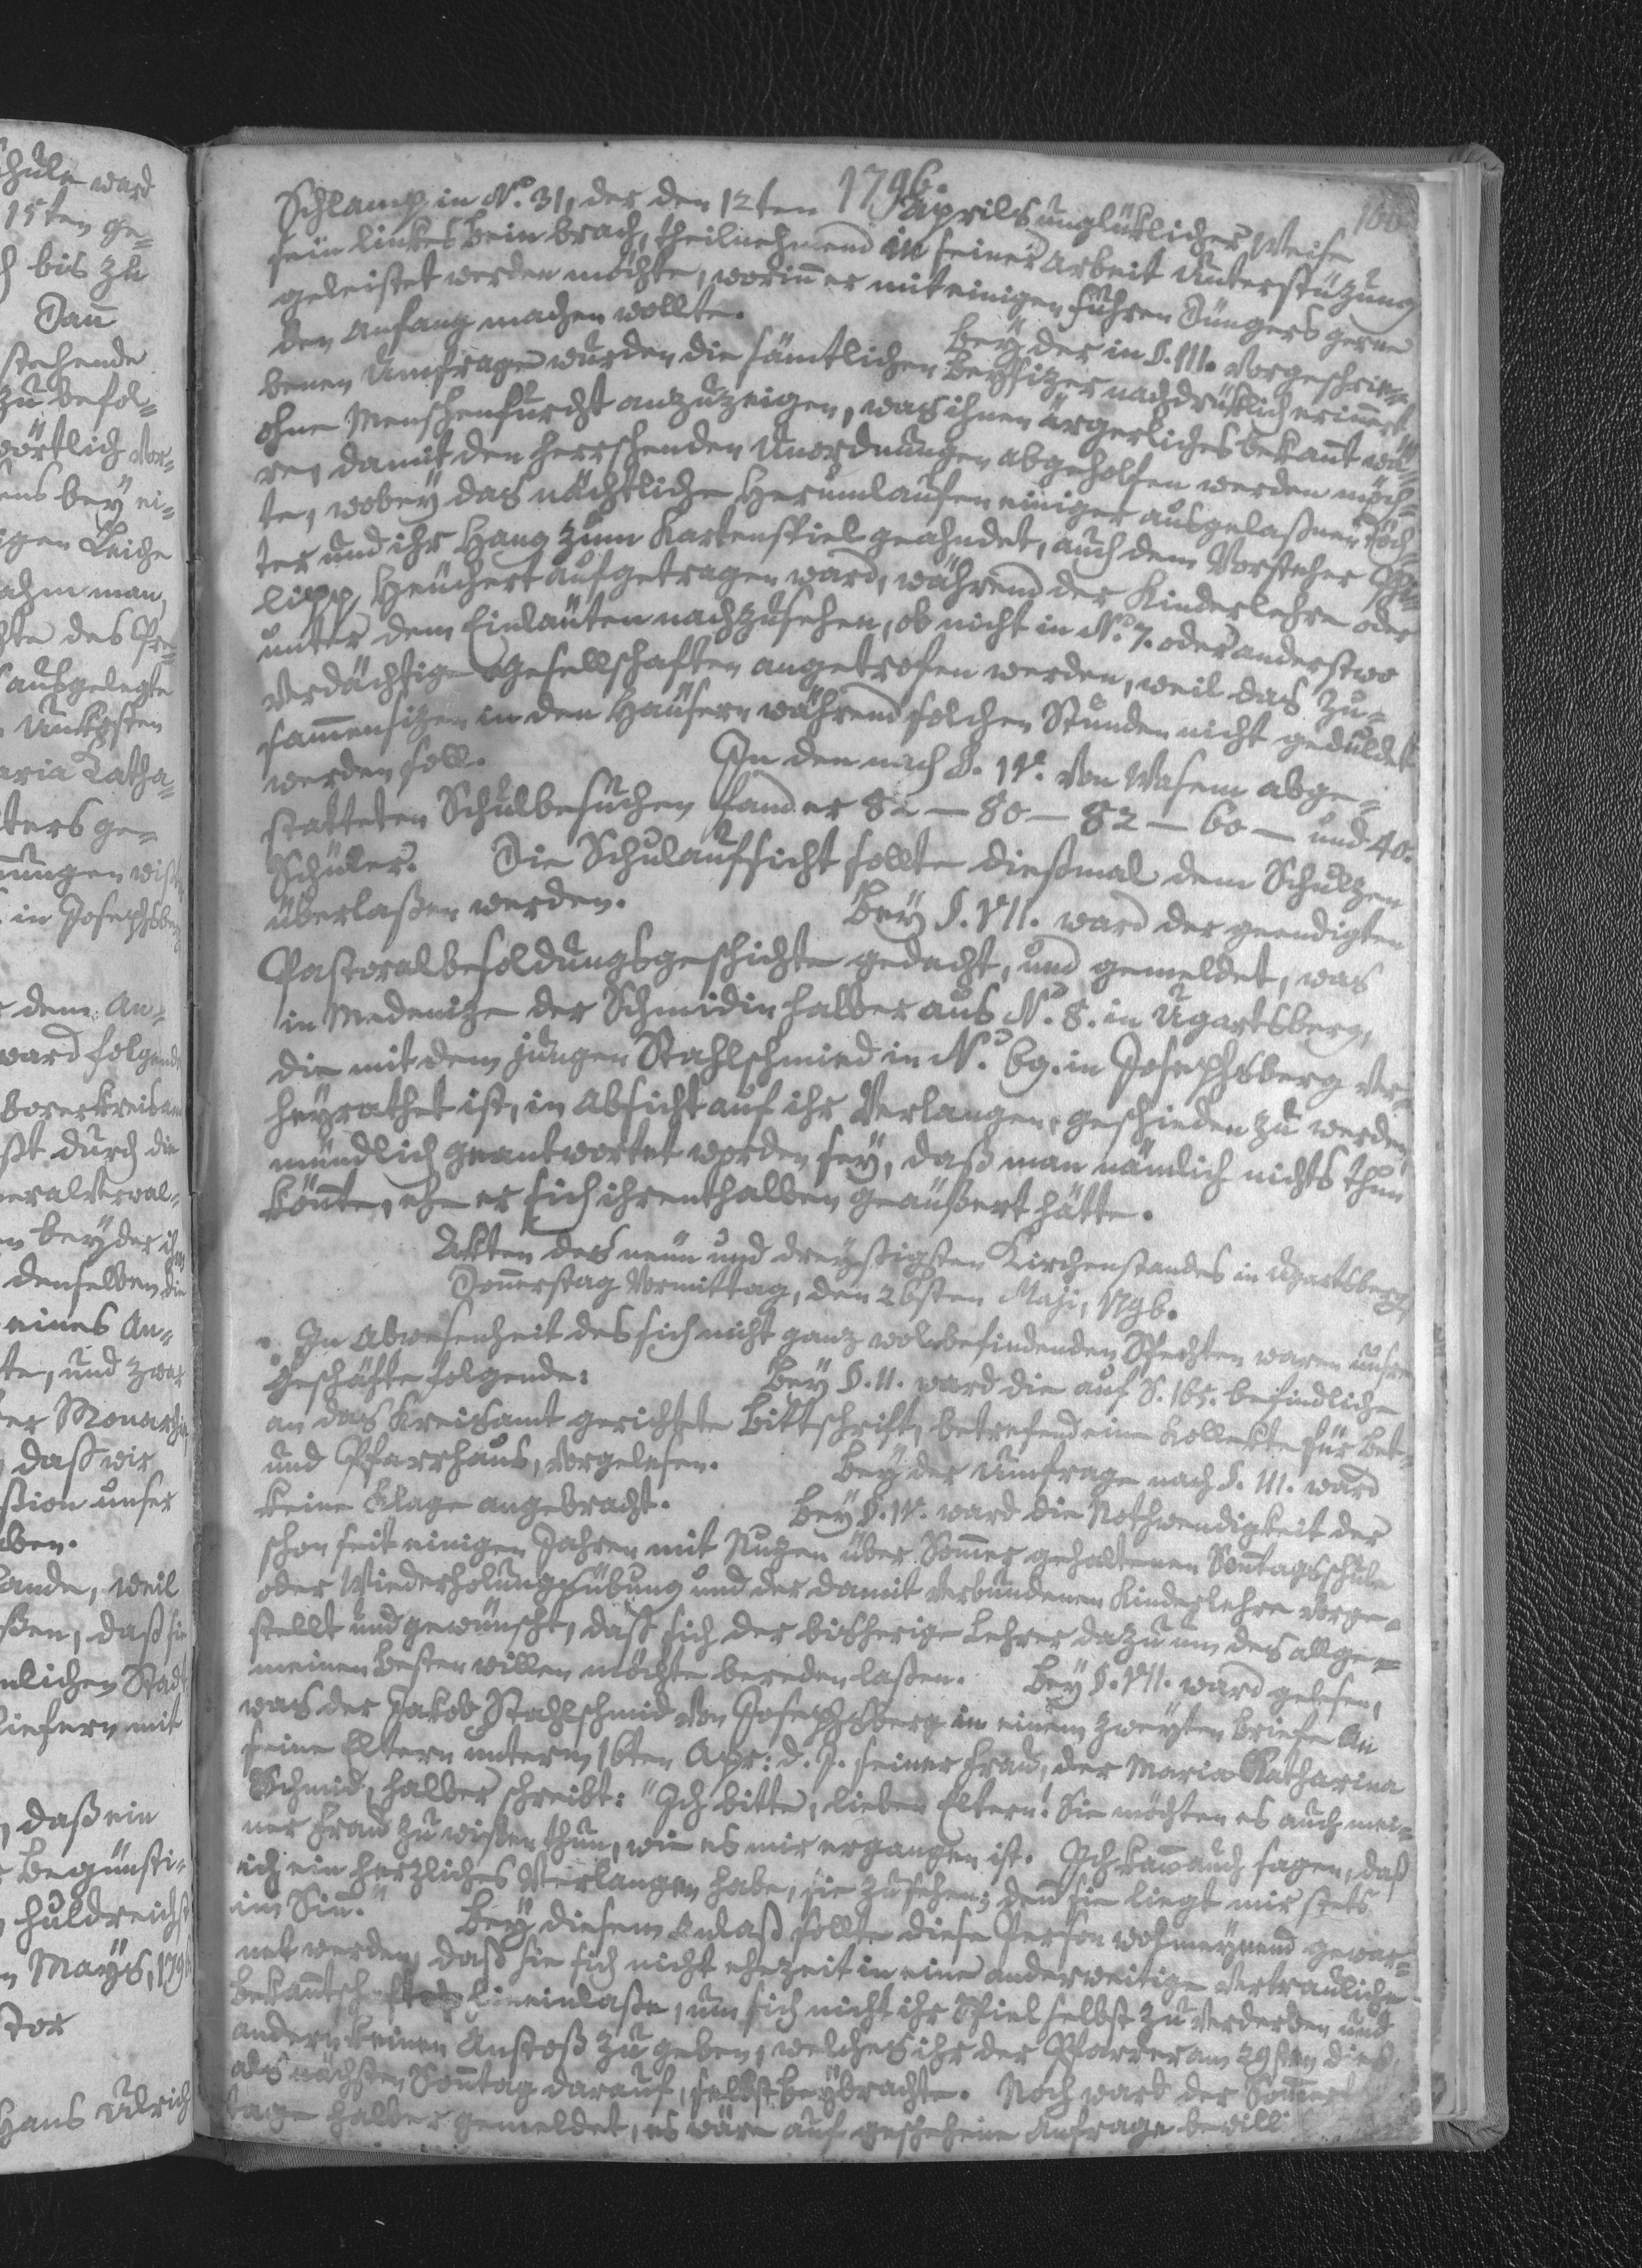 1796.
166
Schlamp in N.º 31, der den 12ten Aprils unglüklicher Weise
sein linkes Bein brach, theilnehmend in seiner Arbeit Unterstüzung
geleistet werden möchte, worinn er mit einigen Fuhren Düngers gerne
den Anfang machen wollte. Bey der in §. III. vorgeschrie=
benen Umfrage wurden die sämtlichen Beysitzer nachdrüklich erinnert,
ohne Menschenfurcht anzuzeigen, was ihnen ärgerliches bekannt wä=
re, damit den herrschenden Unordnungen abgeholfen werden möch=
te, wobey das nächtliche Herumlaufen einiger ausgelaßner Töch=
ter und ihr Hang zum Kartenspiel geahndet, auch dem Vorsteher Phi=
lipp Heuchert aufgetragen ward, während der Kinderlehre oder
unter dem Einläuten nachzusehen, ob nicht in N.º 7. oder anderstwo
verdächtige Gesellschaften angetrofen werden, weil das Zu=
sammensizen in den Häusern während solchen Stunden nicht geduldet
werden soll. In den nach §. IV. von Wasem abge=
statteten Schulbesuchen fand er 82 – 80 – 82 – 60 – und 40.
Schüler. Die Schulaufsicht sollte dießmal dem Schultzen
überlaßen werden. Bey §. VII. ward der geendigten
Pastoralbesoldungsgeschichte gedacht, und gemeldet, was
in Medenize der Schmidin halber aus N.º 8. in Ugartsberg,
die mit dem jungen Stahlschmied in N.º 69. in Josephsberg ver=
heyrathet ist, in Absicht auf ihr Verlangen, geschieden zu werden,
mündlich geantwortet worden sey, daß man nämlich nichts thun
könnte, ehe er sich ihrenthalben geäußert hätte.
Akten des neun und dreyßigsten Kirchenstandes in Ugartsberg,
Donnerstag Vormittag, den 26sten Maji, 1796.
In Abwesenheit des sich nicht ganz wolbefindenden Spechten waren unsre
Geschäfte folgende: Bey §. II. ward die auf S. 165. befindliche
an das Kreisamt gerichtete Bittschrift, betrefend eine Kollekte für Bet=
und Pfarrhaus, vorgelesen. Bey der Umfrage nach §. III. ward
keine Klage angebracht. Bey §. IV. ward die Nothwendigkeit der
schon seit einigen Jahren mit Nuzen über Sommer gehaltenen Sontagsschule
oder Wiederholungsübung und der damit verbundenen Kinderlehre vorge=
stellt und gewünscht, daß sich der bisherige Lehrer dazu um des allge=
meinen Besten willen möchte bereden laßen. Bey §. VII. ward gelesen,
was der Jakob Stahlschmid von Josephsberg in einem zweyten Briefe an
seine Eltern unterm 16ten Apr: d. J. seiner Frau, der Maria Katharina
Schmid, halber schreibt: "Ich bitte, liebe Eltern! Sie möchten es auch mei=
ner Frau zu wißen thun, wie es mir ergangen ist. Ich kann auch sagen, daß
ich ein herzliches Verlangen habe, sie zu sehen; denn sie liegt mir stets
im Sinn." Bey diesem Anlaß sollte diese Person wohmeynend gewar=
net werden, daß sie sich nicht ehezeit in eine anderweitige vertrauliche
Bekanntsch hineinlaße, um sich nicht ihr Spiel selbst zu verderben und
andern keinen Anstoß zu geben, welches ihr der Pfarrer am 29sten dieß,
als nächsten Sonntag darauf, selbst beybrachte. Noch ward der Sommer
tage halber gemeldet, es wäre auf geschehene Anfrage bewill